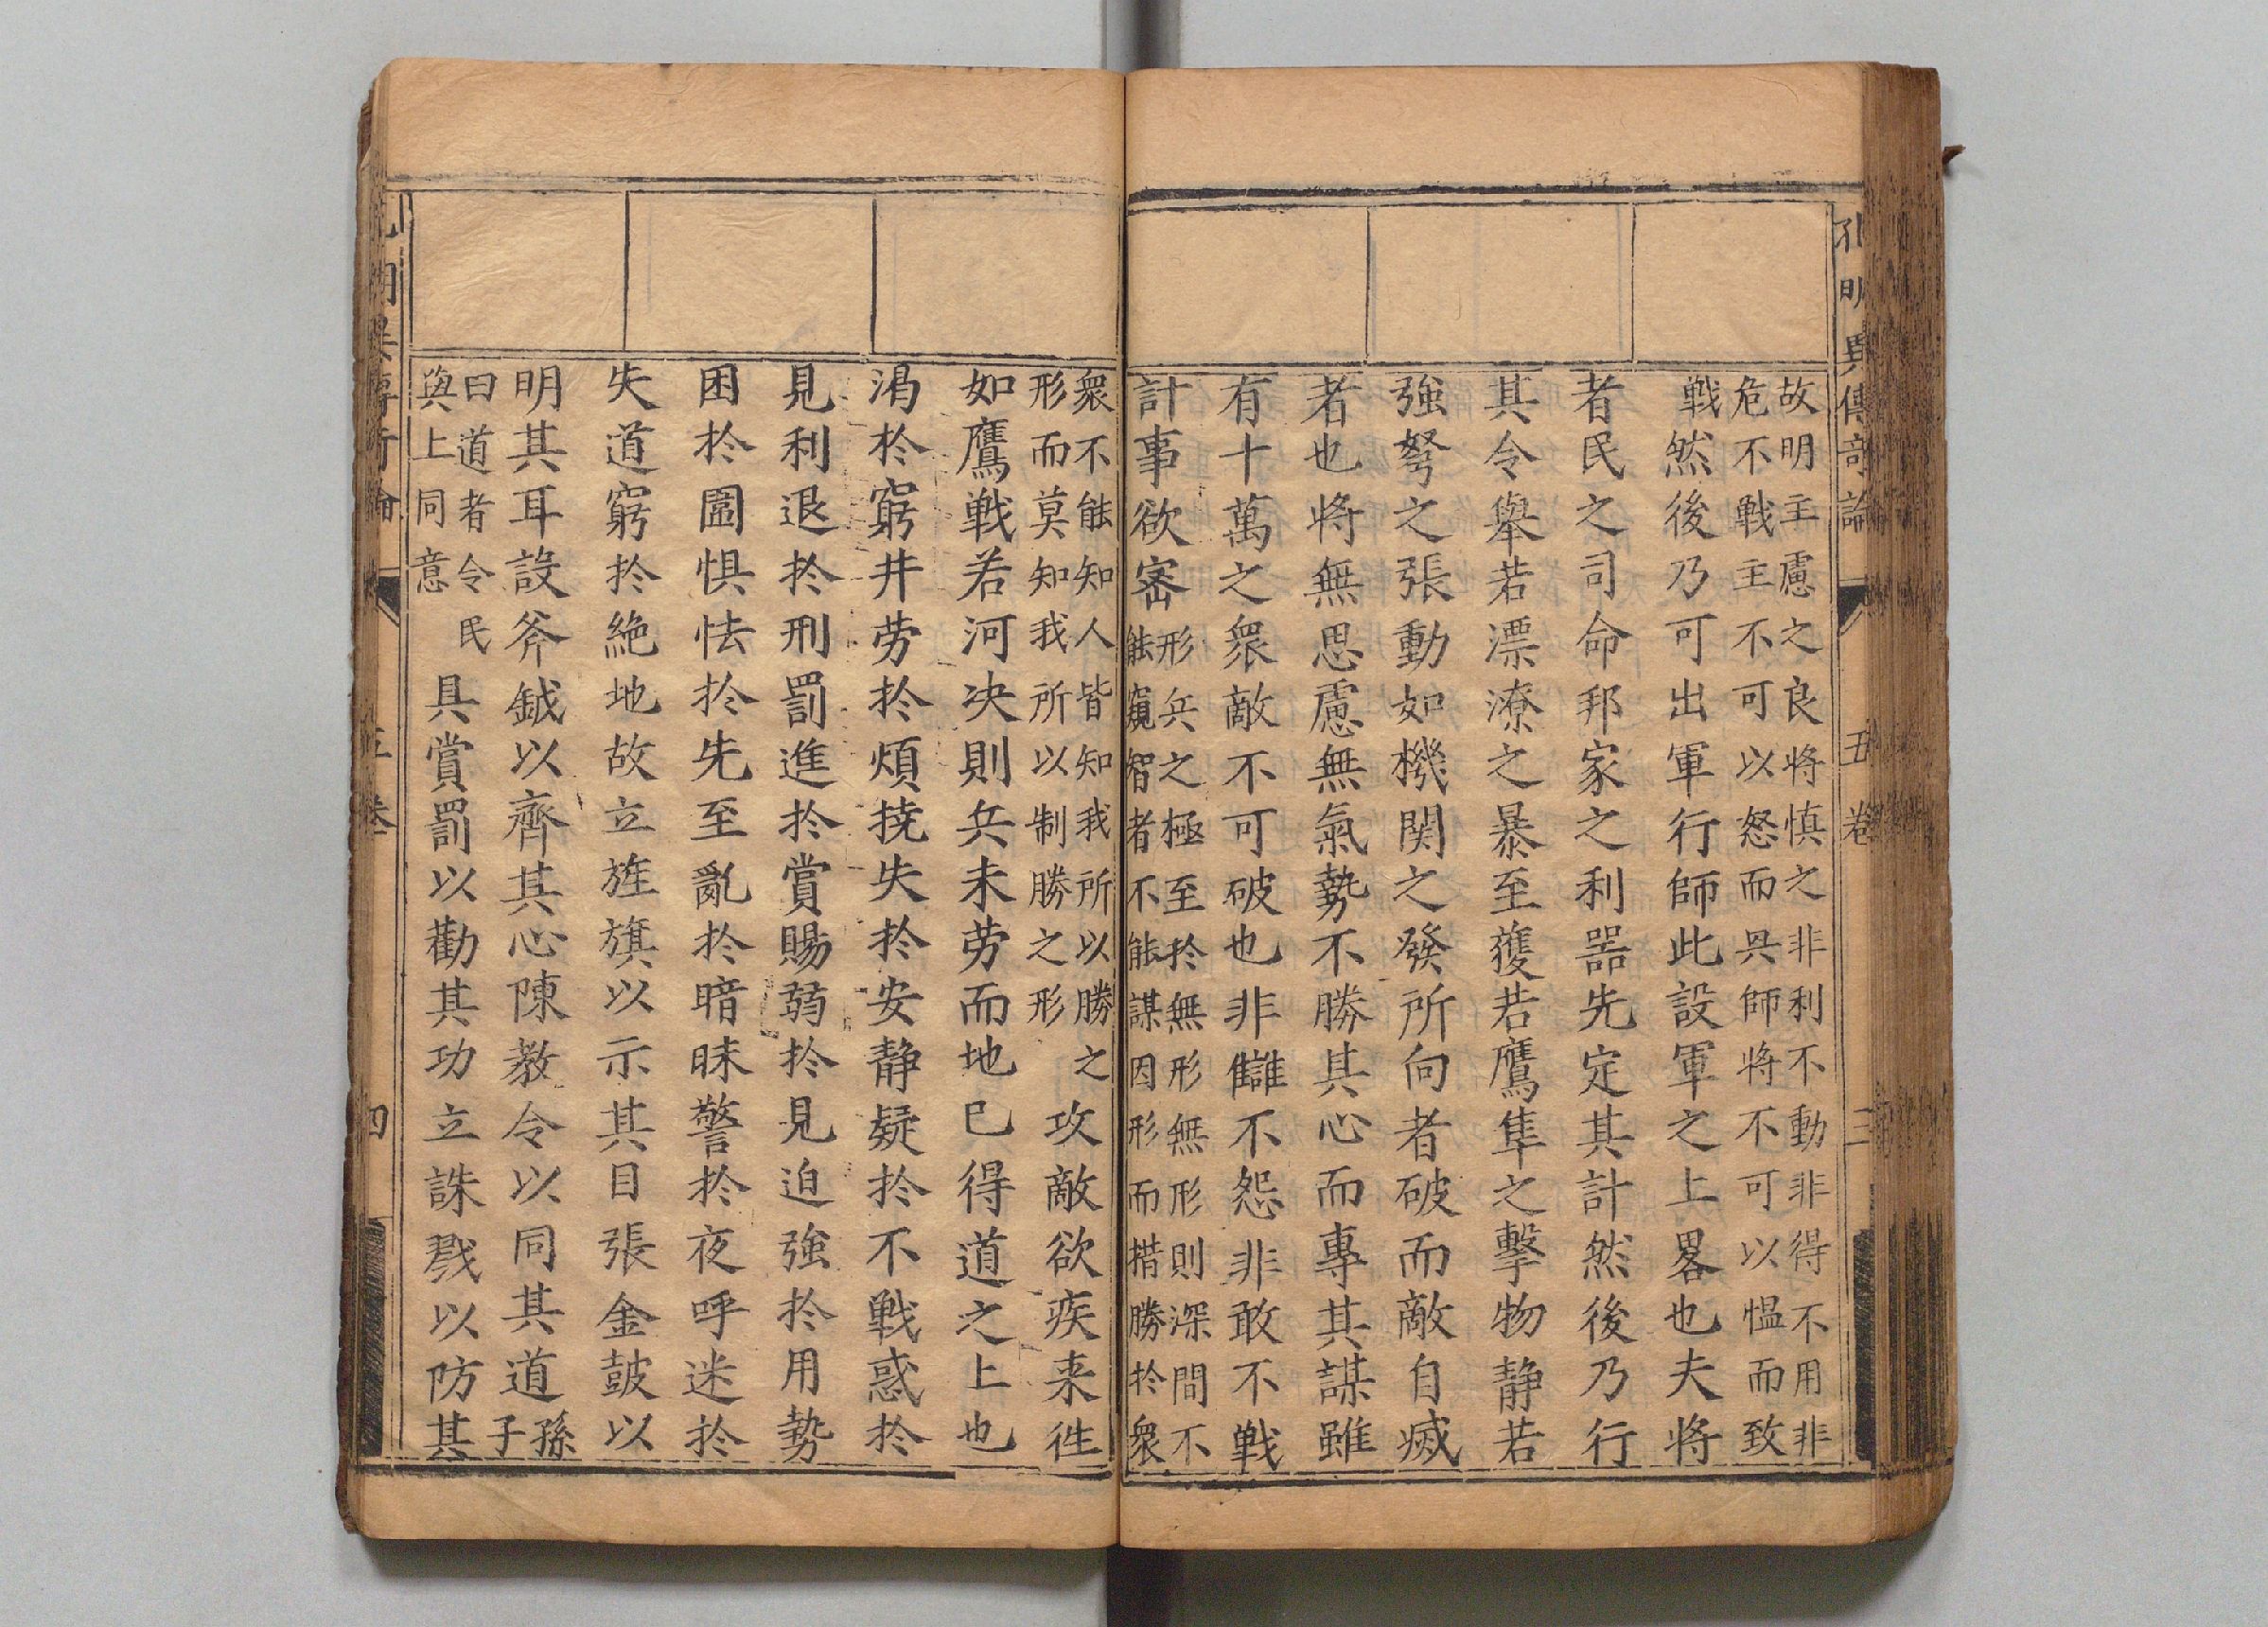 孔明異傳奇論 五卷 三
故明主慮之良將慎之非利不動非得不用非
危不戦主不可以怒而興師將不可以愠而致
戦然後乃可出軍行師此設軍之上畧也夫將
者民之司命邦家之利噐先定其計然後乃行
其令舉若漂潦之暴至獲若鷹隼之擊物静若
強弩之張動如機関之發所向者破而敵自滅
者也将無思慮無氣勢不勝其心而專其謀雖
有十萬之衆敵不可破也非讎不怨非敢不戦
計事欲密
形兵之極至於無形無形則深間不
能窺智者不能謀因形而措勝於衆
衆不能知人皆知我所以勝之
形而莫知我所以制勝之形
攻敵欲疾来徃
如鷹戦若河决則兵未劳而地已得道之上也
渇於窮井劳於煩撓失於安静疑於不戦惑於
見利退於刑罰進於賞賜弱於見迫強於用勢
困於圍惧怯於先至亂於暗昧警於夜呼迷於
失道窮於絶地故立旌旗以示其目張金皷以
明其耳設斧鉞以齊其心陳教令以同其道
孫
子
曰道者令民
與上同意
具賞罰以勸其功立誅戮以防其
五卷 四